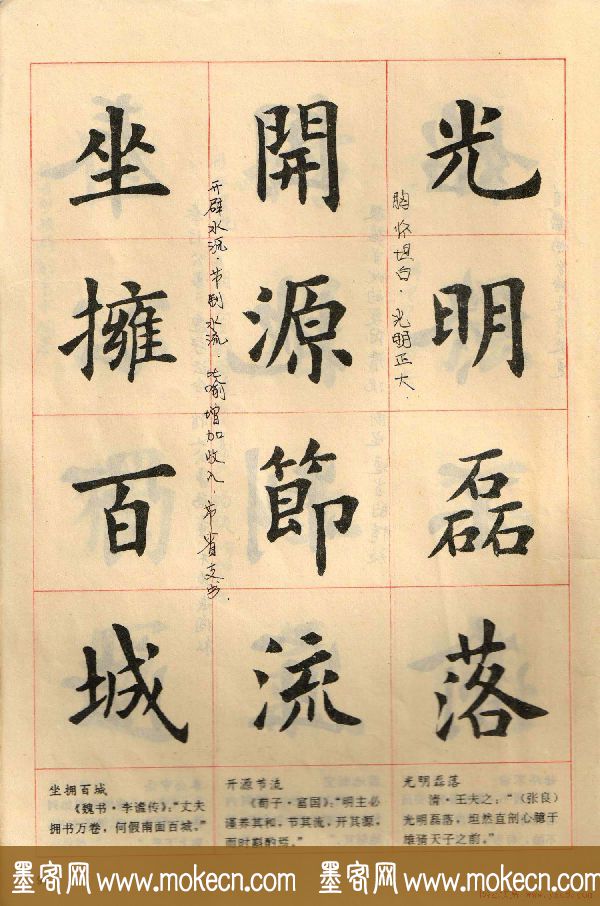 光明磊落
胸怀坦白．光明正大．
開源節流
开辟水沅．节制水流．比喻增加收入．节省支出．
坐擁百城
光明磊落
清·王夫之：“（张良）
光明磊落，坦然直剖心臆于
雄猜天子之前。”
开源节流
《荀子·富国》：“明主必
谨养其和，节其流，开其源，
而时斟酌焉。”
坐拥百城
《魏书·李谧传》：“丈夫
拥书万卷，何假南面百城。”
墨客网 www.mokecn.com 墨客网 www.mokecn.com